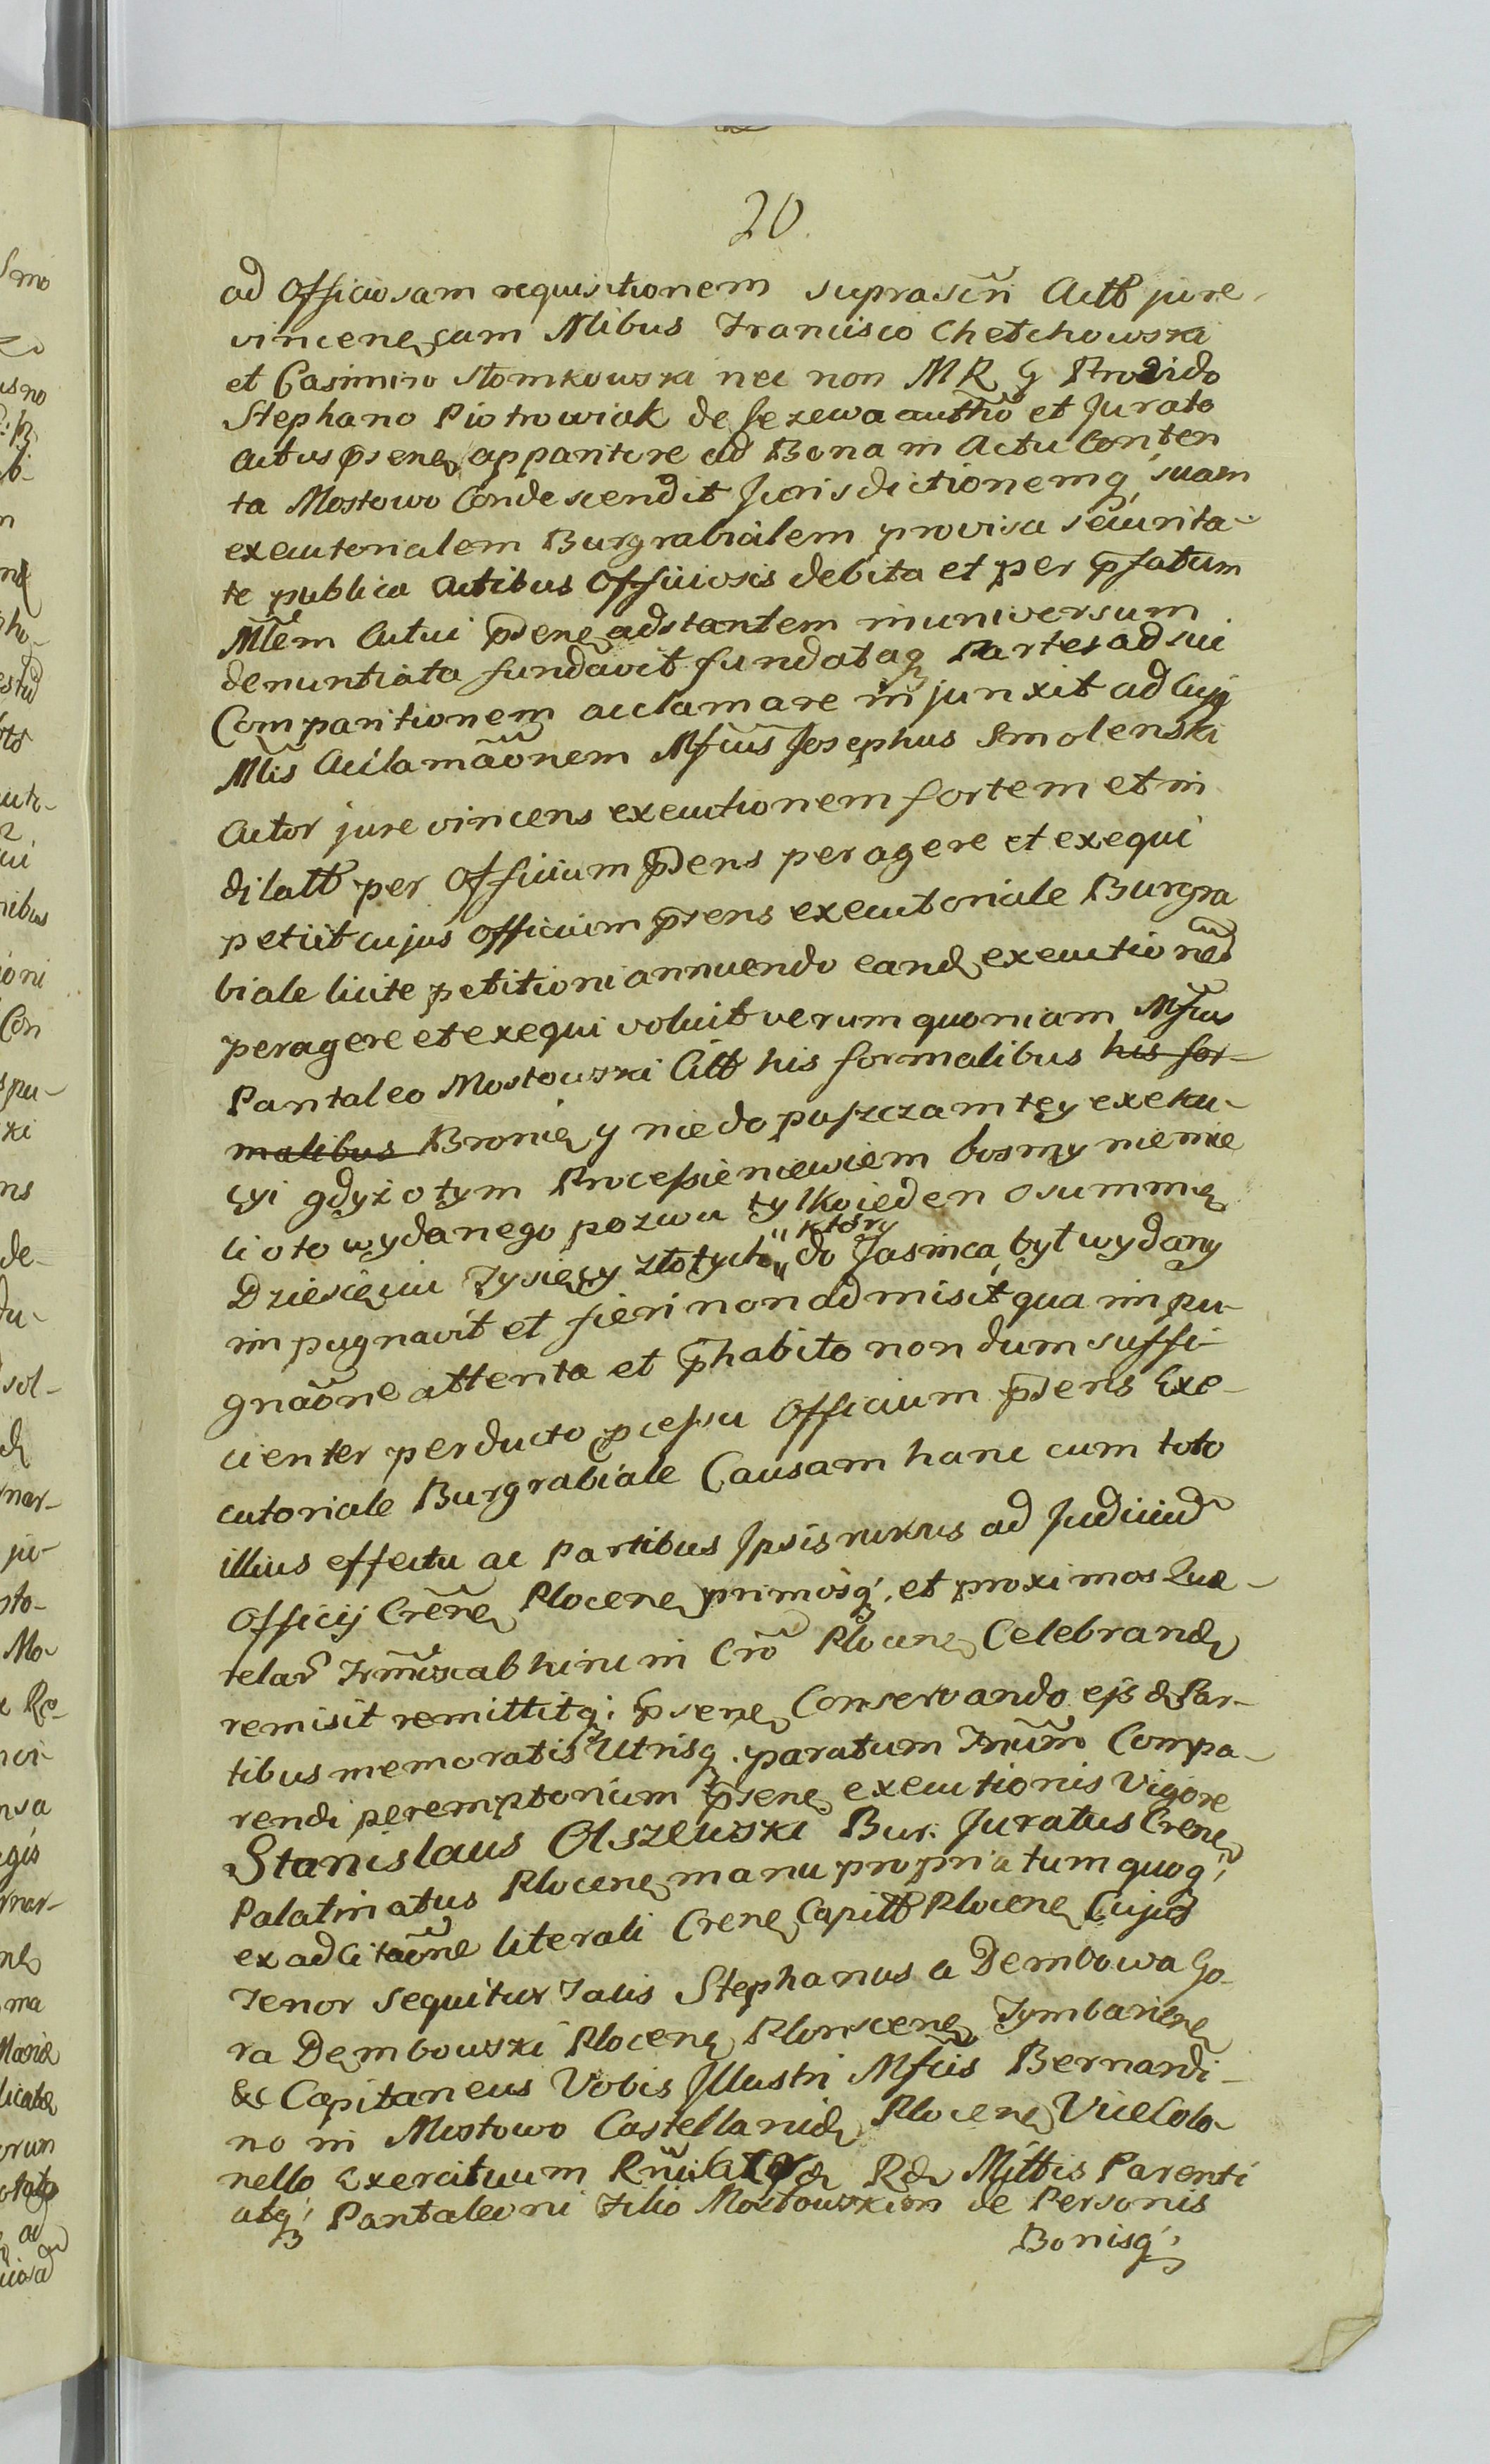 20.
ad Officiosam requisitionem suprascñ Actt jure
vincene cum Mlibus Francisco Chełchowski
et Casimiro Słomkowski nec non MR G Provido
Stephano Piotrowiak de Jezewa autthō et Jurato
actus p̄sene apparitore ad Bona in actu Conten
ta Mostowo Condescendit Jurisdictionemq́ suam
executorialem Burgrabialem provisa securita-
te publica actibus Officiosis debita et per p̄fatum
Mlem Actui p̄sene adstantem in universum
denuntiata fundavit fundataq Partes ad sui
Comparitionem acclamare injunxit ad cujq
Mlis Acclamãonem Mfcus Josephus Smolenski
Actor jure vincens executionem fortem et in
dilatt per Officium p̄sens peragere et exequi
petiit cujus Officium p̄sens executoriale Burgra
biale licite petitioni annuendo eand executioned
peragere et exequi voluit verum quoniam Mfcus
Pantaleo Mostowski Citt his formalibus his for-
malibus Bronię y niedopuszczam tęy exeku-
cyi gdyż o tym Processie niewiem bosmy niemie
li o to wydanego pozwu tylko ieden o summę
Dziesięciu Tysięcy złotych " który
" do Jasinca był wydany
impugnavit et fieri non admisit qua impu-
gnãone attenta et p̄habito nondum suffi-
cienter perducto pcessu Officium p̄sens Exe-
cutoriale Burgrabiale Causam hanc cum toto
illius effectu ac Partibus Ipsis rursus ad Judiciũ
Officij Crẽne Plocene primosq́ et proximos Que-
relar̃ Trmīos ab hinc in Crõ Plocene Celebrand
remisit remittitq́ p̄sene Conservando ejs & Par-
tibus memoratis Utrisq́ paratum Trmũm Compa-
rendi peremptorium p̄sene executionis Vigore
Stanislaus Olszewski Bur. Juratus Crene
Palatinatus Plocene manu propria tumquoq́
ex adcitaõne literali Crene Capitt Plocene Cujus
Tenor Sequitur Talis Stephanus a Dembowa Go-
ra Dembowski Plocene Plonscene Tymbariene
&c Capitaneus Vobis Illustri Mfcis Bernardi-
no in Mostowo Castellanid Plocene ViceColo-
nello Exercituum Rd Mittis Parenti
atq́ Pantaleoni Filio Mostowskim de Personis
Bonisq́